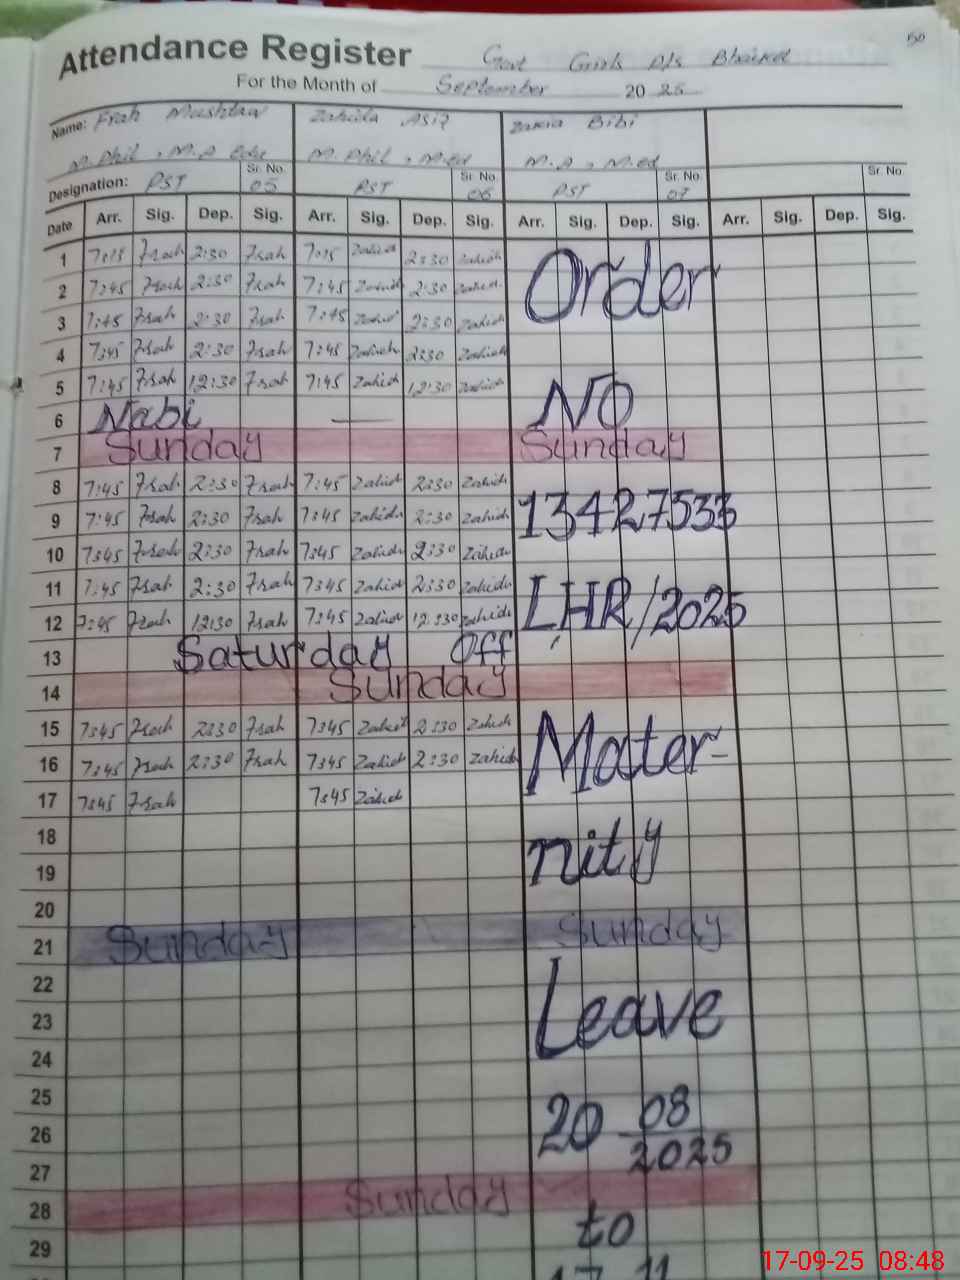 50
Attendance Register Govt Girls P/S
For the Month of September 2025
Name: Frah Mushtaq Zahida Asif Zakia Bibi
M.Phil, M.A Edu M.Phil, M.ed M.A, M.ed
Designation: PST Sr. No. 05 PST Sr. No. 06 PST Sr. No. 07 Sr. No.
Date Arr. Sig. Dep. Sig. Arr. Sig. Dep. Sig. Arr. Sig. Dep. Sig. Arr. Sig. Dep. Sig.
1 Frah 2:30 Frah Zahid 2:30 Zahid
2 7:45 Frah 2:30 Frah 7:45 Zahid 2:30 Zahid
3 7:45 Frah 2:30 Frah 7:45 Zahid 2:30 Zahid
4 7:45 Frah 2:30 Frah 7:45 Zahid 2:30 Zahid
5 7:45 Frah 12:30 Frah 7:45 Zahid 12:30 Zahid
6 Nabi —
7 Sunday Sunday
8 7:45 Frah 2:30 Frah 7:45 Zahid 2:30 Zahid
9 7:45 Frah 2:30 Frah 7:45 Zahid 2:30 Zahid
10 7:45 Frah 2:30 Frah 7:45 Zahid 2:30 Zahid
11 7:45 Frah 2:30 Frah 7:45 Zahid 2:30 Zahid
12 7:45 Frah 12:30 Frah 7:45 Zahid 12:30 Zahid
13 Saturday Off
14 Sunday
15 7:45 Frah 2:30 Frah 7:45 Zahid 2:30 Zahid
16 7:45 Frah 2:30 Frah 7:45 Zahid 2:30 Zahid
17 7:45 Frah 7:45 Zahid
18
19
20
21 Sunday Sunday
22
23
24
25
26
27
28 Sunday
29
Order
NO
13427533
LHR/2025
Mater-
nity
Leave
20 08
2025
to
17 11
17-09-25 08:48